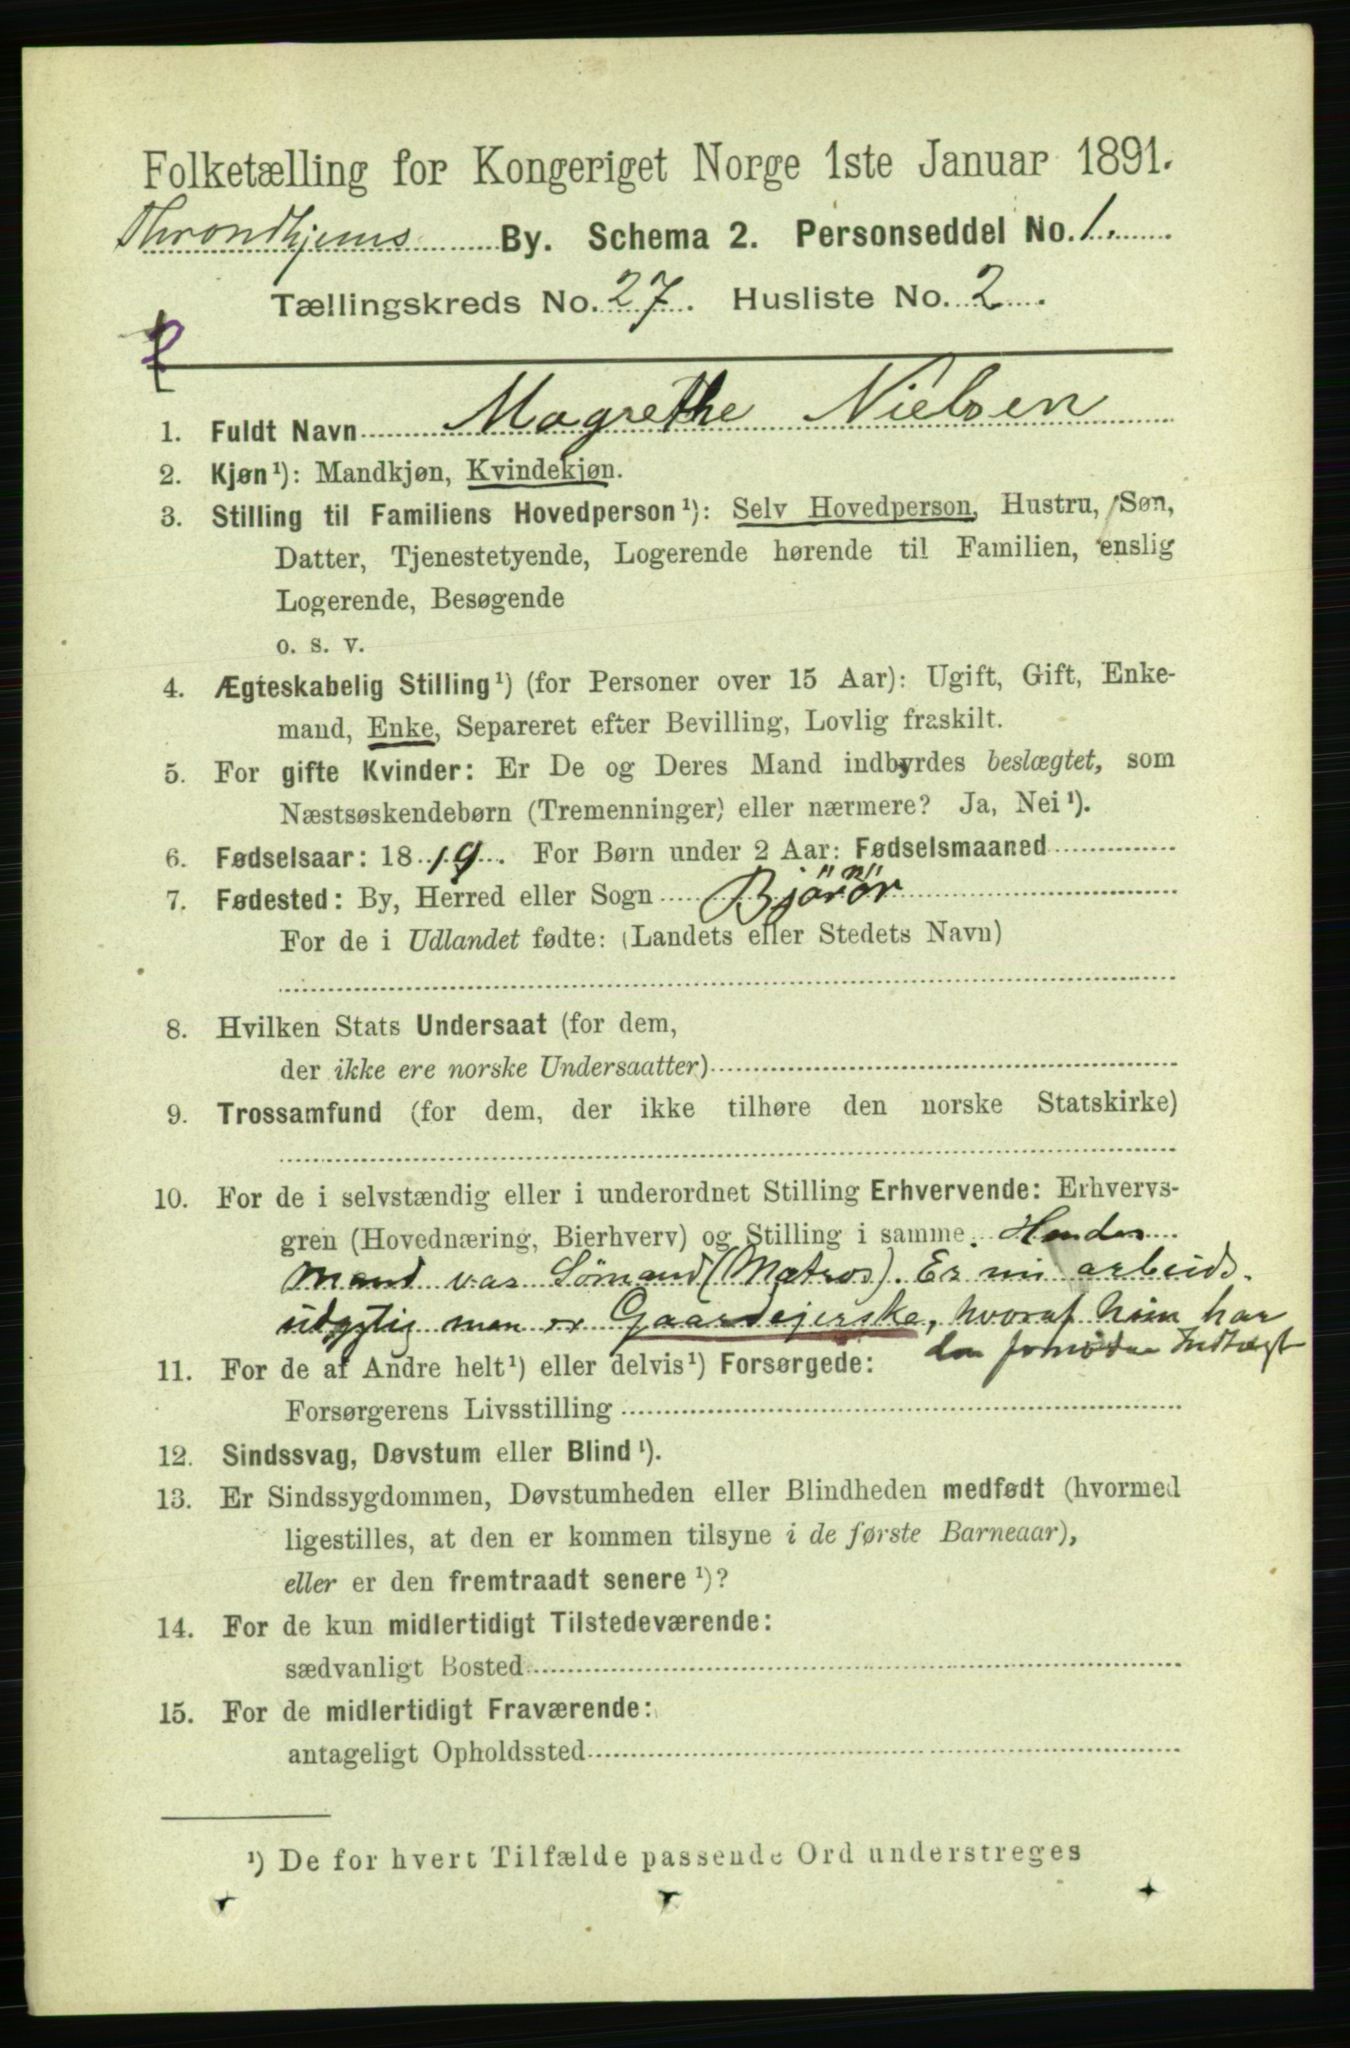 Folketælling for Kongeriget Norge 1ste Januar 1891.
Throndhjems By. Schema 2. Personseddel No. 1.
Tællingskreds No. 27. Husliste No. 2.
1. Fuldt Navn Magrethe Nielsen
2. Kjøn¹): Mandkjøn, Kvindekjøn.
3. Stilling til Familiens Hovedperson¹): Selv Hovedperson, Hustru, Søn,
Datter, Tjenestetyende, Logerende hørende til Familien, enslig
Logerende, Besøgende
o. s. v.
4. Ægteskabelig Stilling¹) (for Personer over 15 Aar): Ugift, Gift, Enke-
mand, Enke, Separeret efter Bevilling, Lovlig fraskilt.
5. For gifte Kvinder: Er De og Deres Mand indbyrdes beslægtet, som
Næstsøskendebørn (Tremenninger) eller nærmere? Ja, Nei¹).
6. Fødselsaar: 1819. For Børn under 2 Aar: Fødselsmaaned
7. Fødested: By, Herred eller Sogn Björnör
For de i Udlandet fødte: (Landets eller Stedets Navn)
8. Hvilken Stats Undersaat (for dem,
der ikke ere norske Undersaatter)
9. Trossamfund (for dem, der ikke tilhøre den norske Statskirke)
10. For de i selvstændig eller i underordnet Stilling Erhvervende: Erhvervs-
gren (Hovednæring, Bierhverv) og Stilling i samme. Hendes
Mand var Sömand (Matros). Er nu arbeids-
udygtig men er Gaardejerske, hvoraf hun har
den fornödne Indtægt
11. For de af Andre helt¹) eller delvis¹) Forsørgede:
Forsørgerens Livsstilling
12. Sindssvag, Døvstum eller Blind¹).
13. Er Sindssygdommen, Døvstumheden eller Blindheden medfødt (hvormed
ligestilles, at den er kommen tilsyne i de første Barneaar),
eller er den fremtraadt senere¹)?
14. For de kun midlertidigt Tilstedeværende:
sædvanligt Bosted
15. For de midlertidigt Fraværende:
antageligt Opholdssted
¹) De for hvert Tilfælde passende Ord understreges